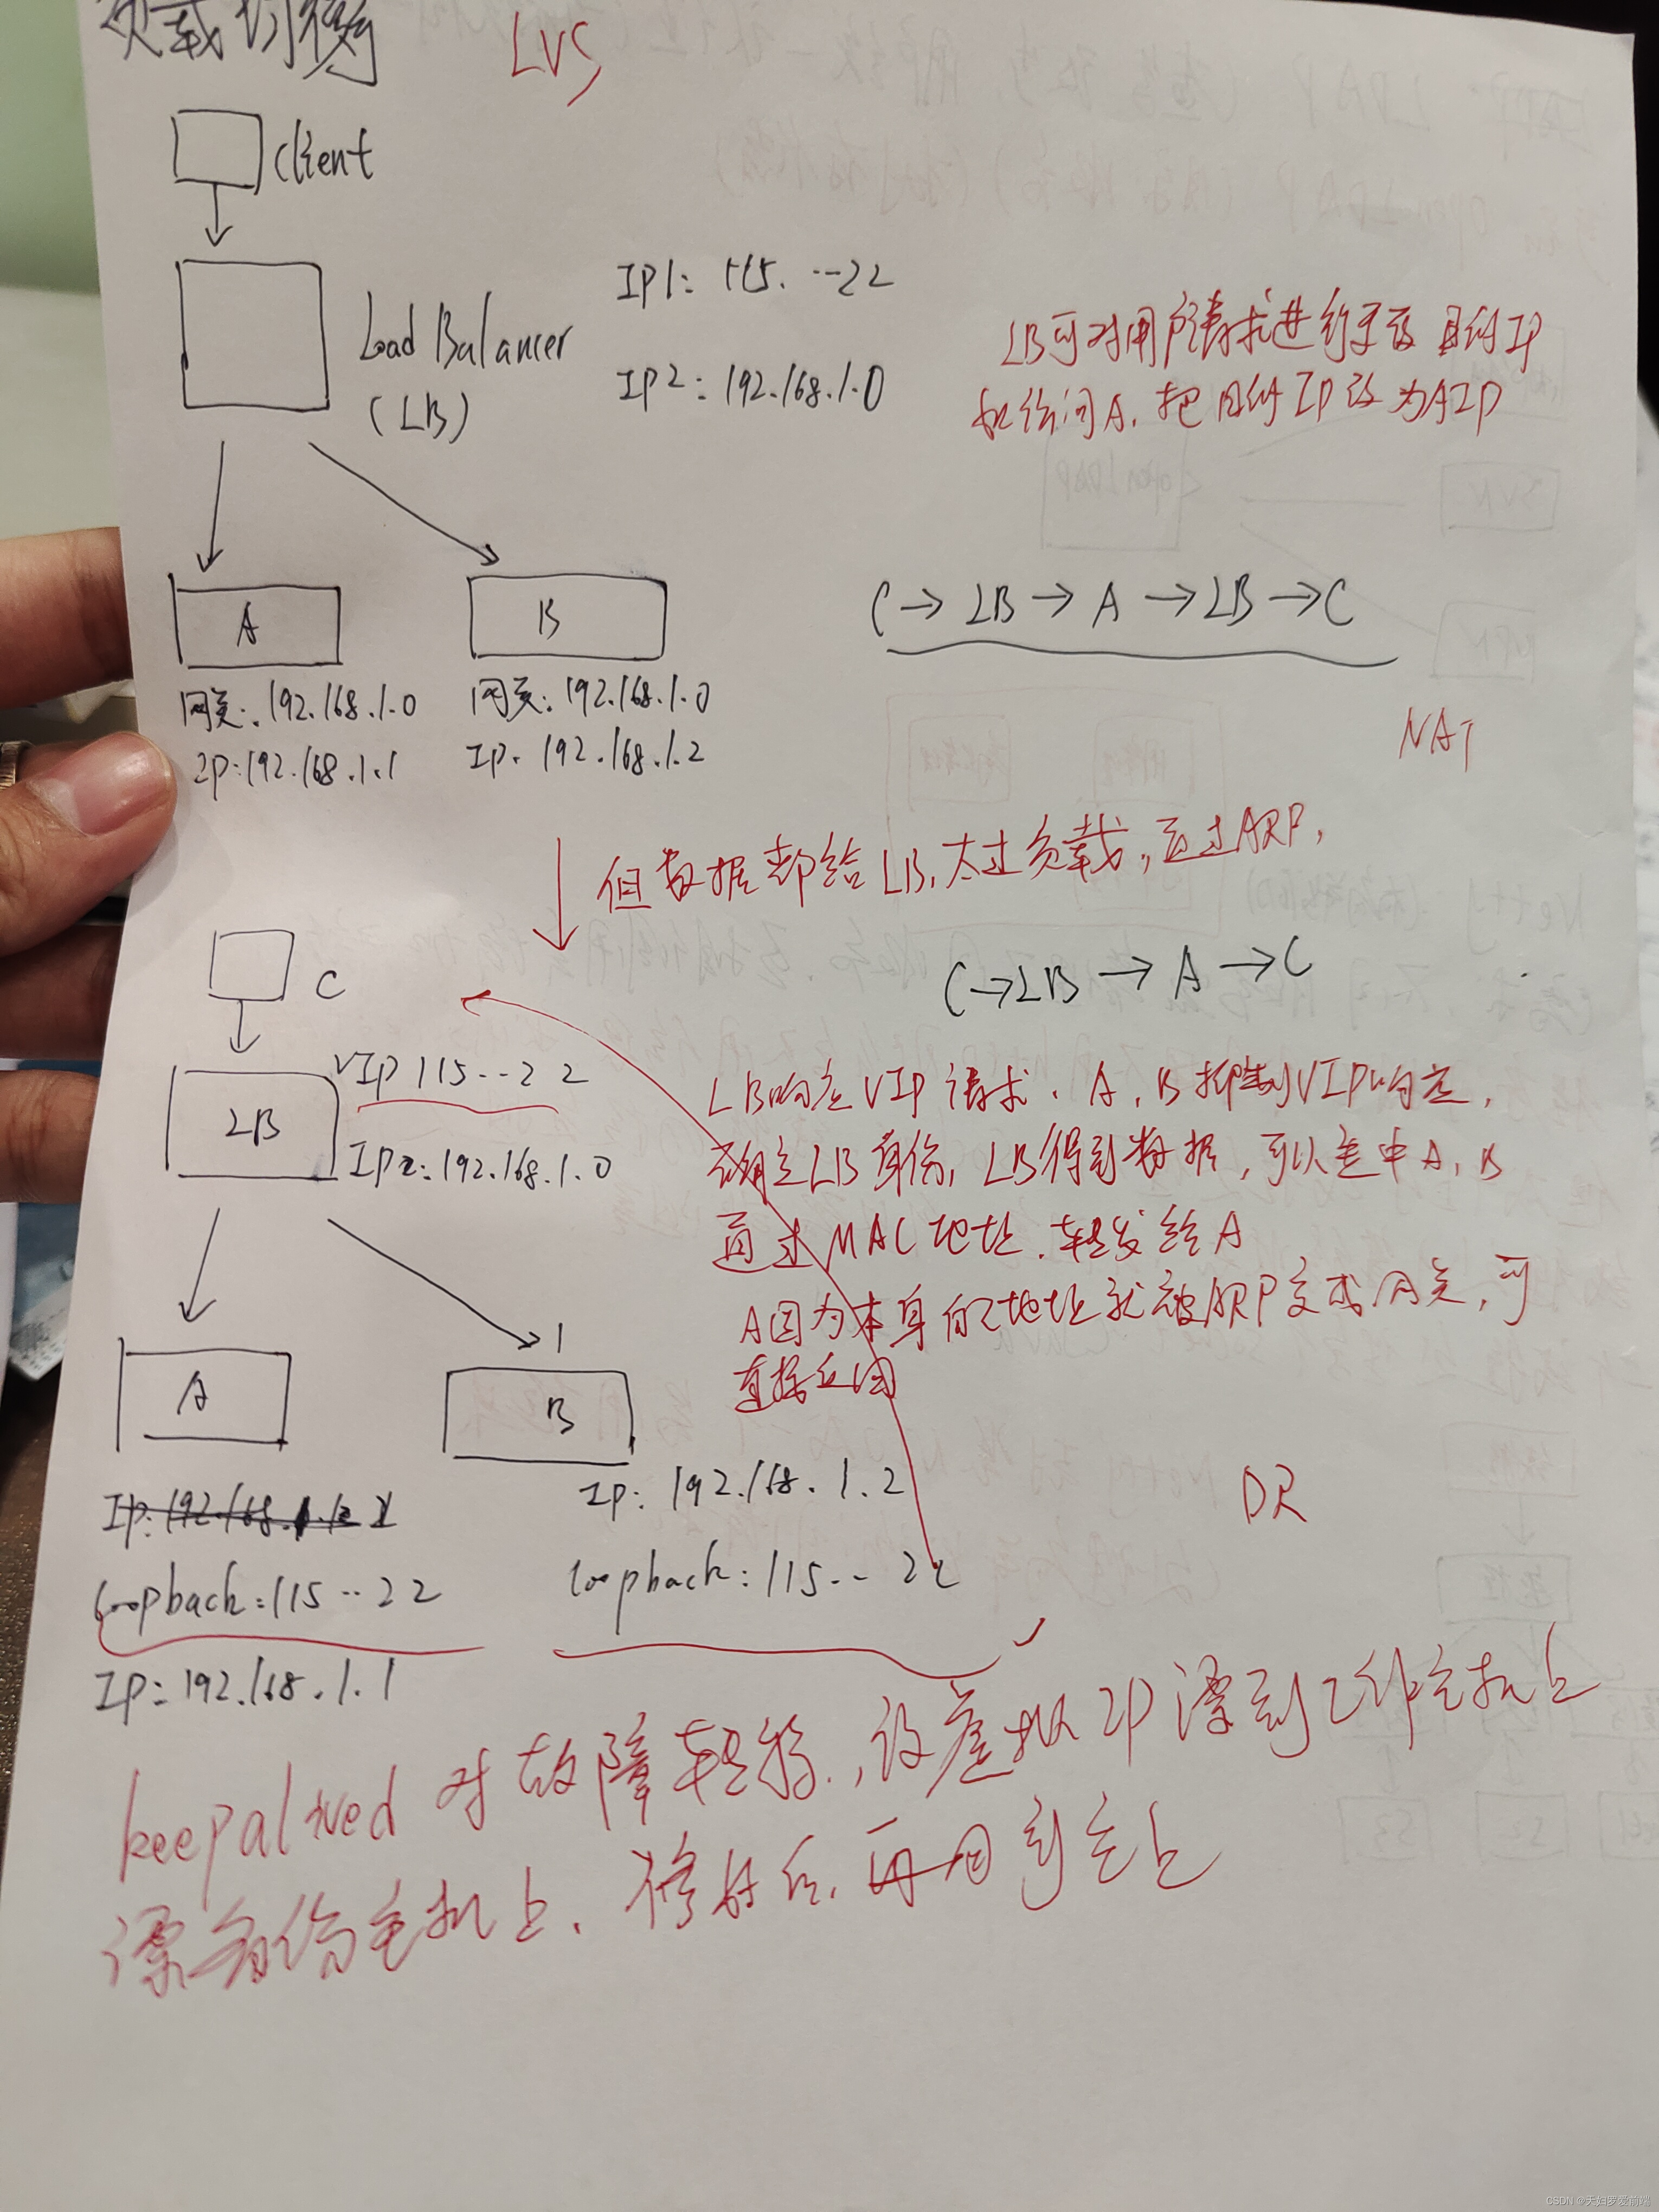 负载均衡 LVS
client
Load Balancer
(LB)
IP1: 115. ...22
IP2: 192.168.1.0
LB可对用户请求进行更改 目的IP
把目的IP改为AIP
A
B
网关: 192.168.1.0
IP: 192.168.1.1
网关: 192.168.1.0
IP. 192.168.1.2
C→LB→A→LB→C
NAT
但数据都给LB,太过负载,通过ARP,
C
C→LB→A→C
LB
VIP 115...22
IP2: 192.168.1.0
LB响应VIP请求. A, B抑制VIP响应,
确定LB身份, LB得到数据, 可以选中A, B
通过MAC地址.转发给A
A因为本身的地址就被ARP变成网关,可
直接返回
A
B
Loopback: 115...22
IP: 192.168.1.1
IP: 192.168.1.2
loopback: 115...22
DR
keepalived 对故障转移,设虚拟IP漂到工作主机上
漂备份主机上,修好后,再回到主上
CSDN